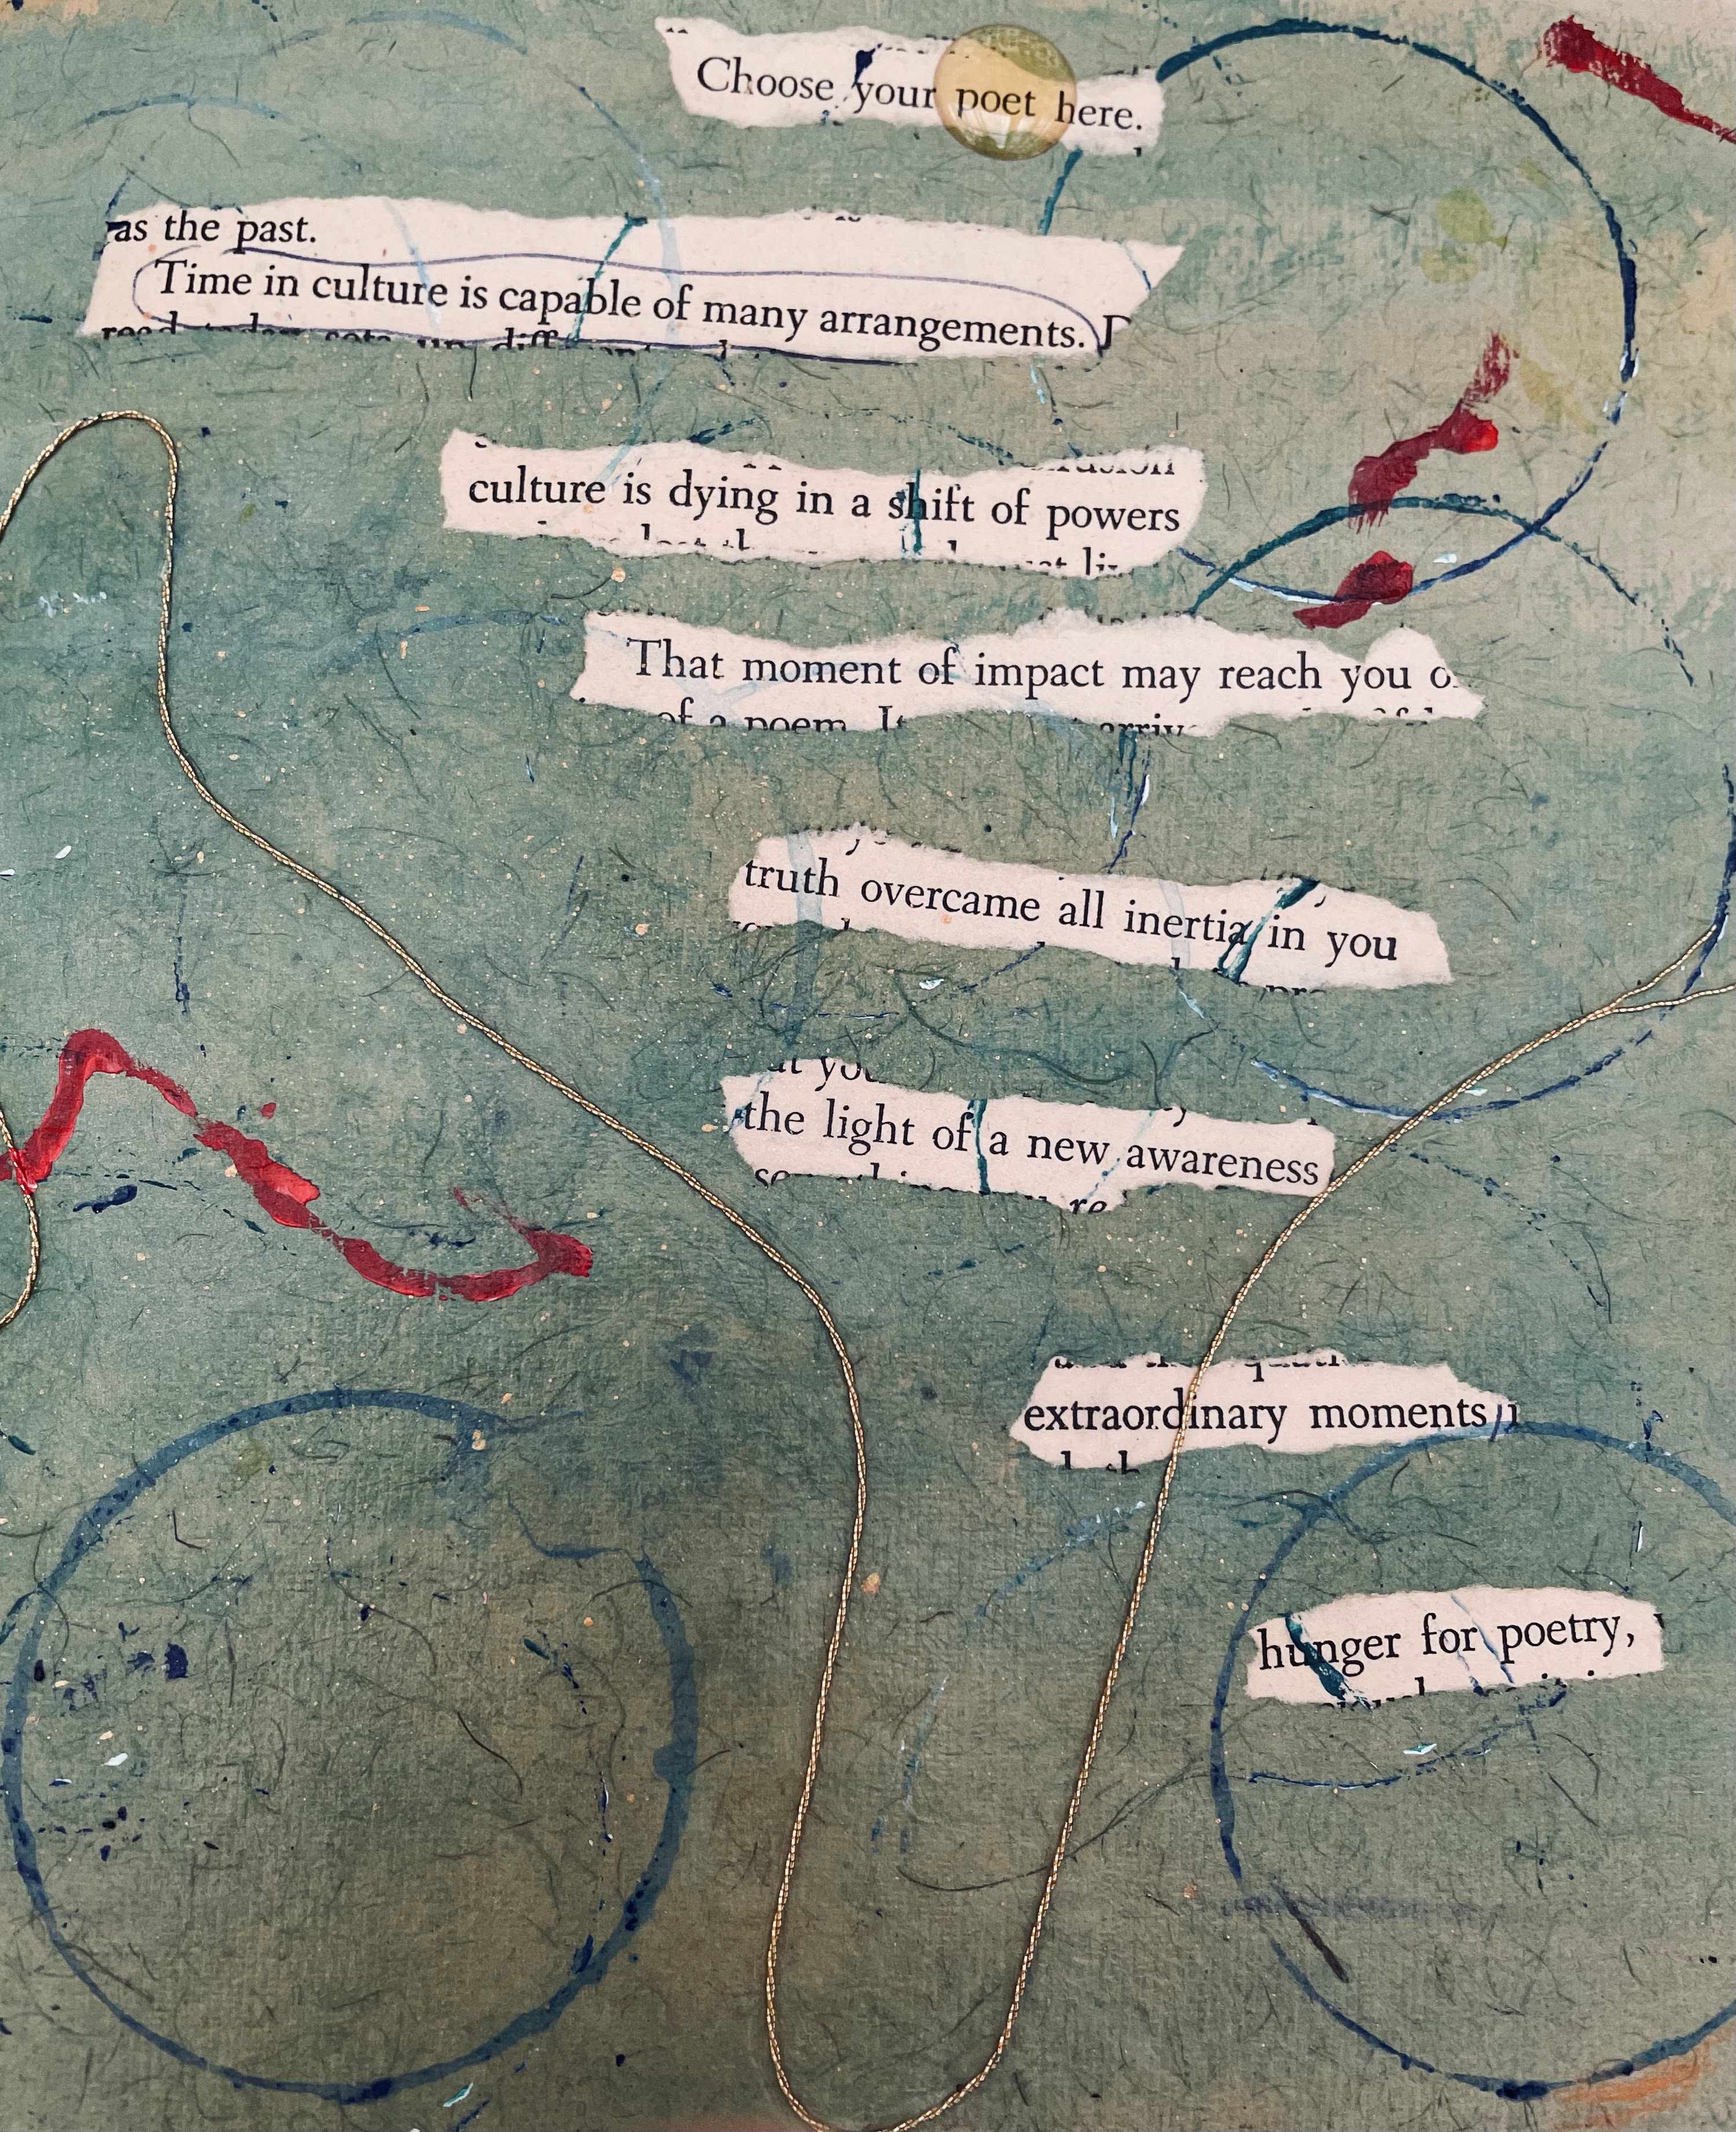 Choose your poet here.
as the past.
Time in culture is capable of many arrangements.
culture is dying in a shift of powers
That moment of impact may reach you
of a poem. It
truth overcame all inertia in you
the light of a new awareness
extraordinary moments
hunger for poetry,